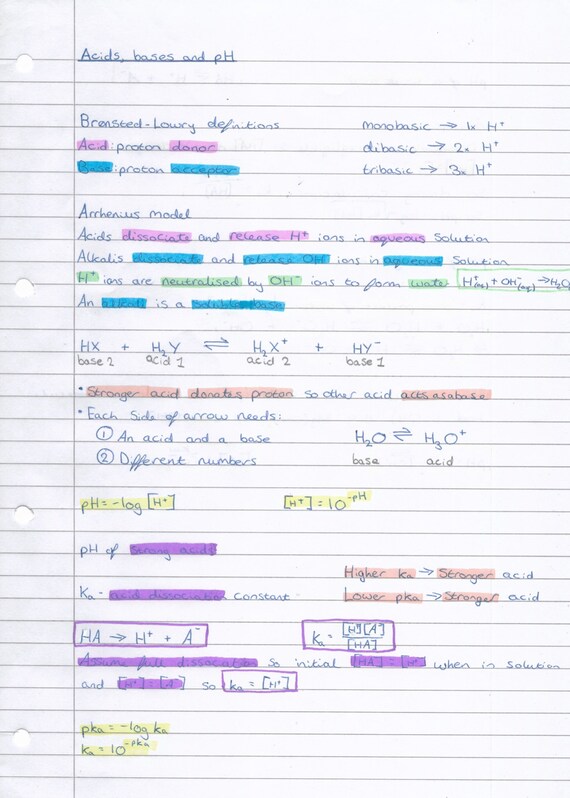 Acids, bases and pH
Brønsted-Lowry definitions monobasic → 1x H⁺
Acid: proton donor dibasic → 2x H⁺
Base: proton acceptor tribasic → 3x H⁺
Arrhenius model
Acids dissociate and release H⁺ ions in aqueous solution
Alkalis dissociate and release OH⁻ ions in aqueous solution
H⁺ ions are neutralised by OH⁻ ions to form water H⁺(aq) + OH⁻(aq) → H₂O
An alkali is a soluble base
HX + H₂Y ⇌ H₂X⁺ + HY⁻
base 2 acid 1 acid 2 base 1
• Stronger acid donates proton so other acid acts as a base
• Each side of arrow needs:
① An acid and a base H₂O ⇌ H₃O⁺
② Different numbers base acid
pH = -log [H⁺] [H⁺] = 10^-pH
pH of strong acids
Higher ka → Stronger acid
Ka - acid dissociation constant Lower pka → Stronger acid
HA → H⁺ + A⁻ Ka = [H⁺][A⁻] / [HA]
Assume full dissociation so initial [HA] = [H⁺] when in solution
and [H⁺] = [A⁻] so ka = [H⁺]
pka = -log ka
ka = 10^-pka